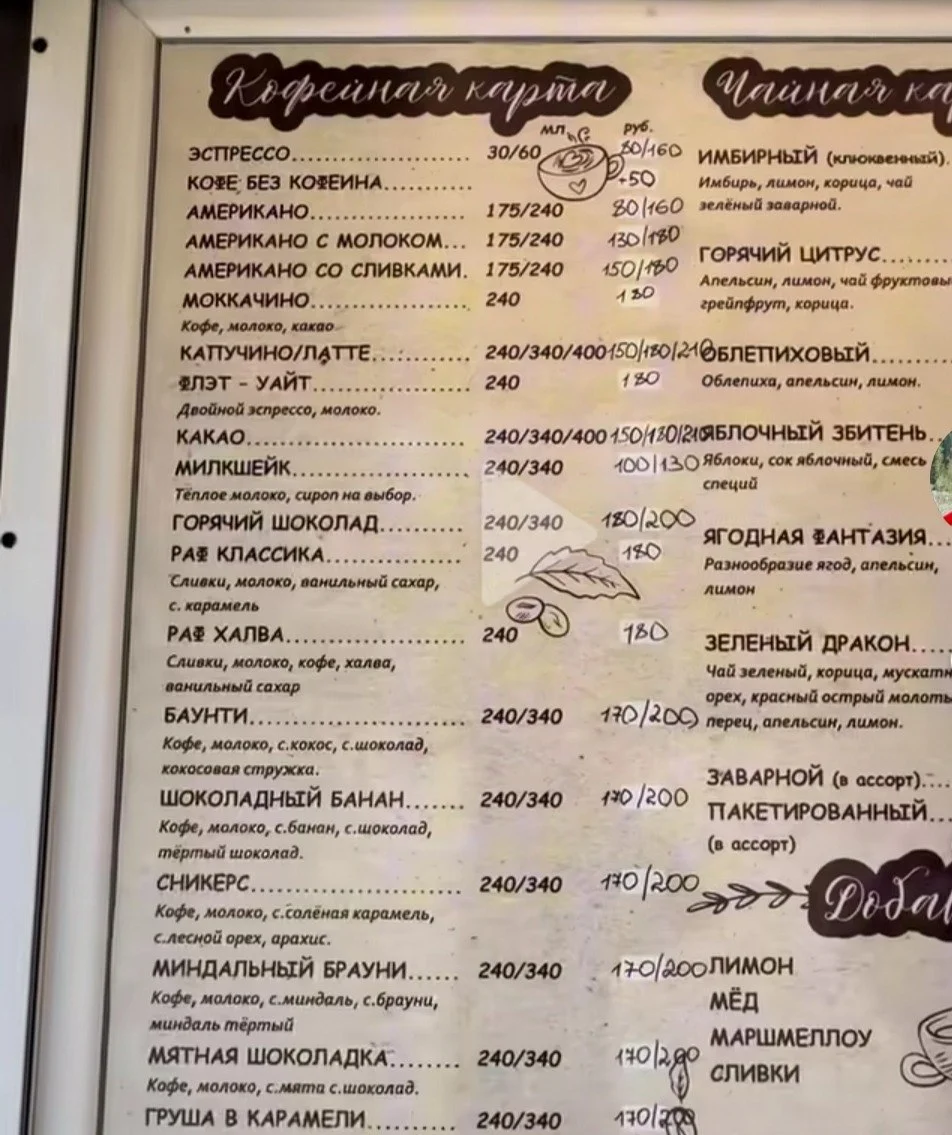 Кофейная карта
мл руб.
ЭСПРЕССО 30/60 80/160
КОФЕ БЕЗ КОФЕИНА +50
АМЕРИКАНО 175/240 80/160
АМЕРИКАНО С МОЛОКОМ... 175/240 130/180
АМЕРИКАНО СО СЛИВКАМИ. 175/240 150/180
МОККАЧИНО 240 180
Кофе, молоко, какао
КАПУЧИНО/ЛАТТЕ 240/340/400 150/180/210
ФЛЭТ - УАЙТ 240 180
Двойной эспрессо, молоко.
КАКАО 240/340/400 150/180/210
МИЛКШЕЙК 240/340 100/130
Тёплое молоко, сироп на выбор.
ГОРЯЧИЙ ШОКОЛАД 240/340 180/200
РАФ КЛАССИКА 240 180
Сливки, молоко, ванильный сахар,
с. карамель
РАФ ХАЛВА 240 180
Сливки, молоко, кофе, халва,
ванильный сахар
БАУНТИ 240/340 170/200
Кофе, молоко, с.кокос, с.шоколад,
кокосовая стружка.
ШОКОЛАДНЫЙ БАНАН 240/340 170/200
Кофе, молоко, с.банан, с.шоколад,
тёртый шоколад.
СНИКЕРС 240/340 170/200
Кофе, молоко, с.солёная карамель,
с.лесной орех, арахис.
МИНДАЛЬНЫЙ БРАУНИ 240/340 170/200
Кофе, молоко, с.миндаль, с.брауни,
миндаль тёртый
МЯТНАЯ ШОКОЛАДКА 240/340 170/200
Кофе, молоко, с.мята с.шоколад.
ГРУША В КАРАМЕЛИ 240/340 170/200
Чайная ка
ИМБИРНЫЙ (клюквенный).
Имбирь, лимон, корица, чай
зелёный заварной.
ГОРЯЧИЙ ЦИТРУС
Апельсин, лимон, чай фруктовы
грейпфрут, корица.
ОБЛЕПИХОВЫЙ
Облепиха, апельсин, лимон.
ЯБЛОЧНЫЙ ЗБИТЕНЬ
Яблоки, сок яблочный, смесь
специй
ЯГОДНАЯ ФАНТАЗИЯ
Разнообразие ягод, апельсин,
лимон
ЗЕЛЕНЫЙ ДРАКОН
Чай зеленый, корица, мускатн
орех, красный острый молоты
перец, апельсин, лимон.
ЗАВАРНОЙ (в ассорт)
ПАКЕТИРОВАННЫЙ
(в ассорт)
Доба
ЛИМОН
МЁД
МАРШМЕЛЛОУ
СЛИВКИ